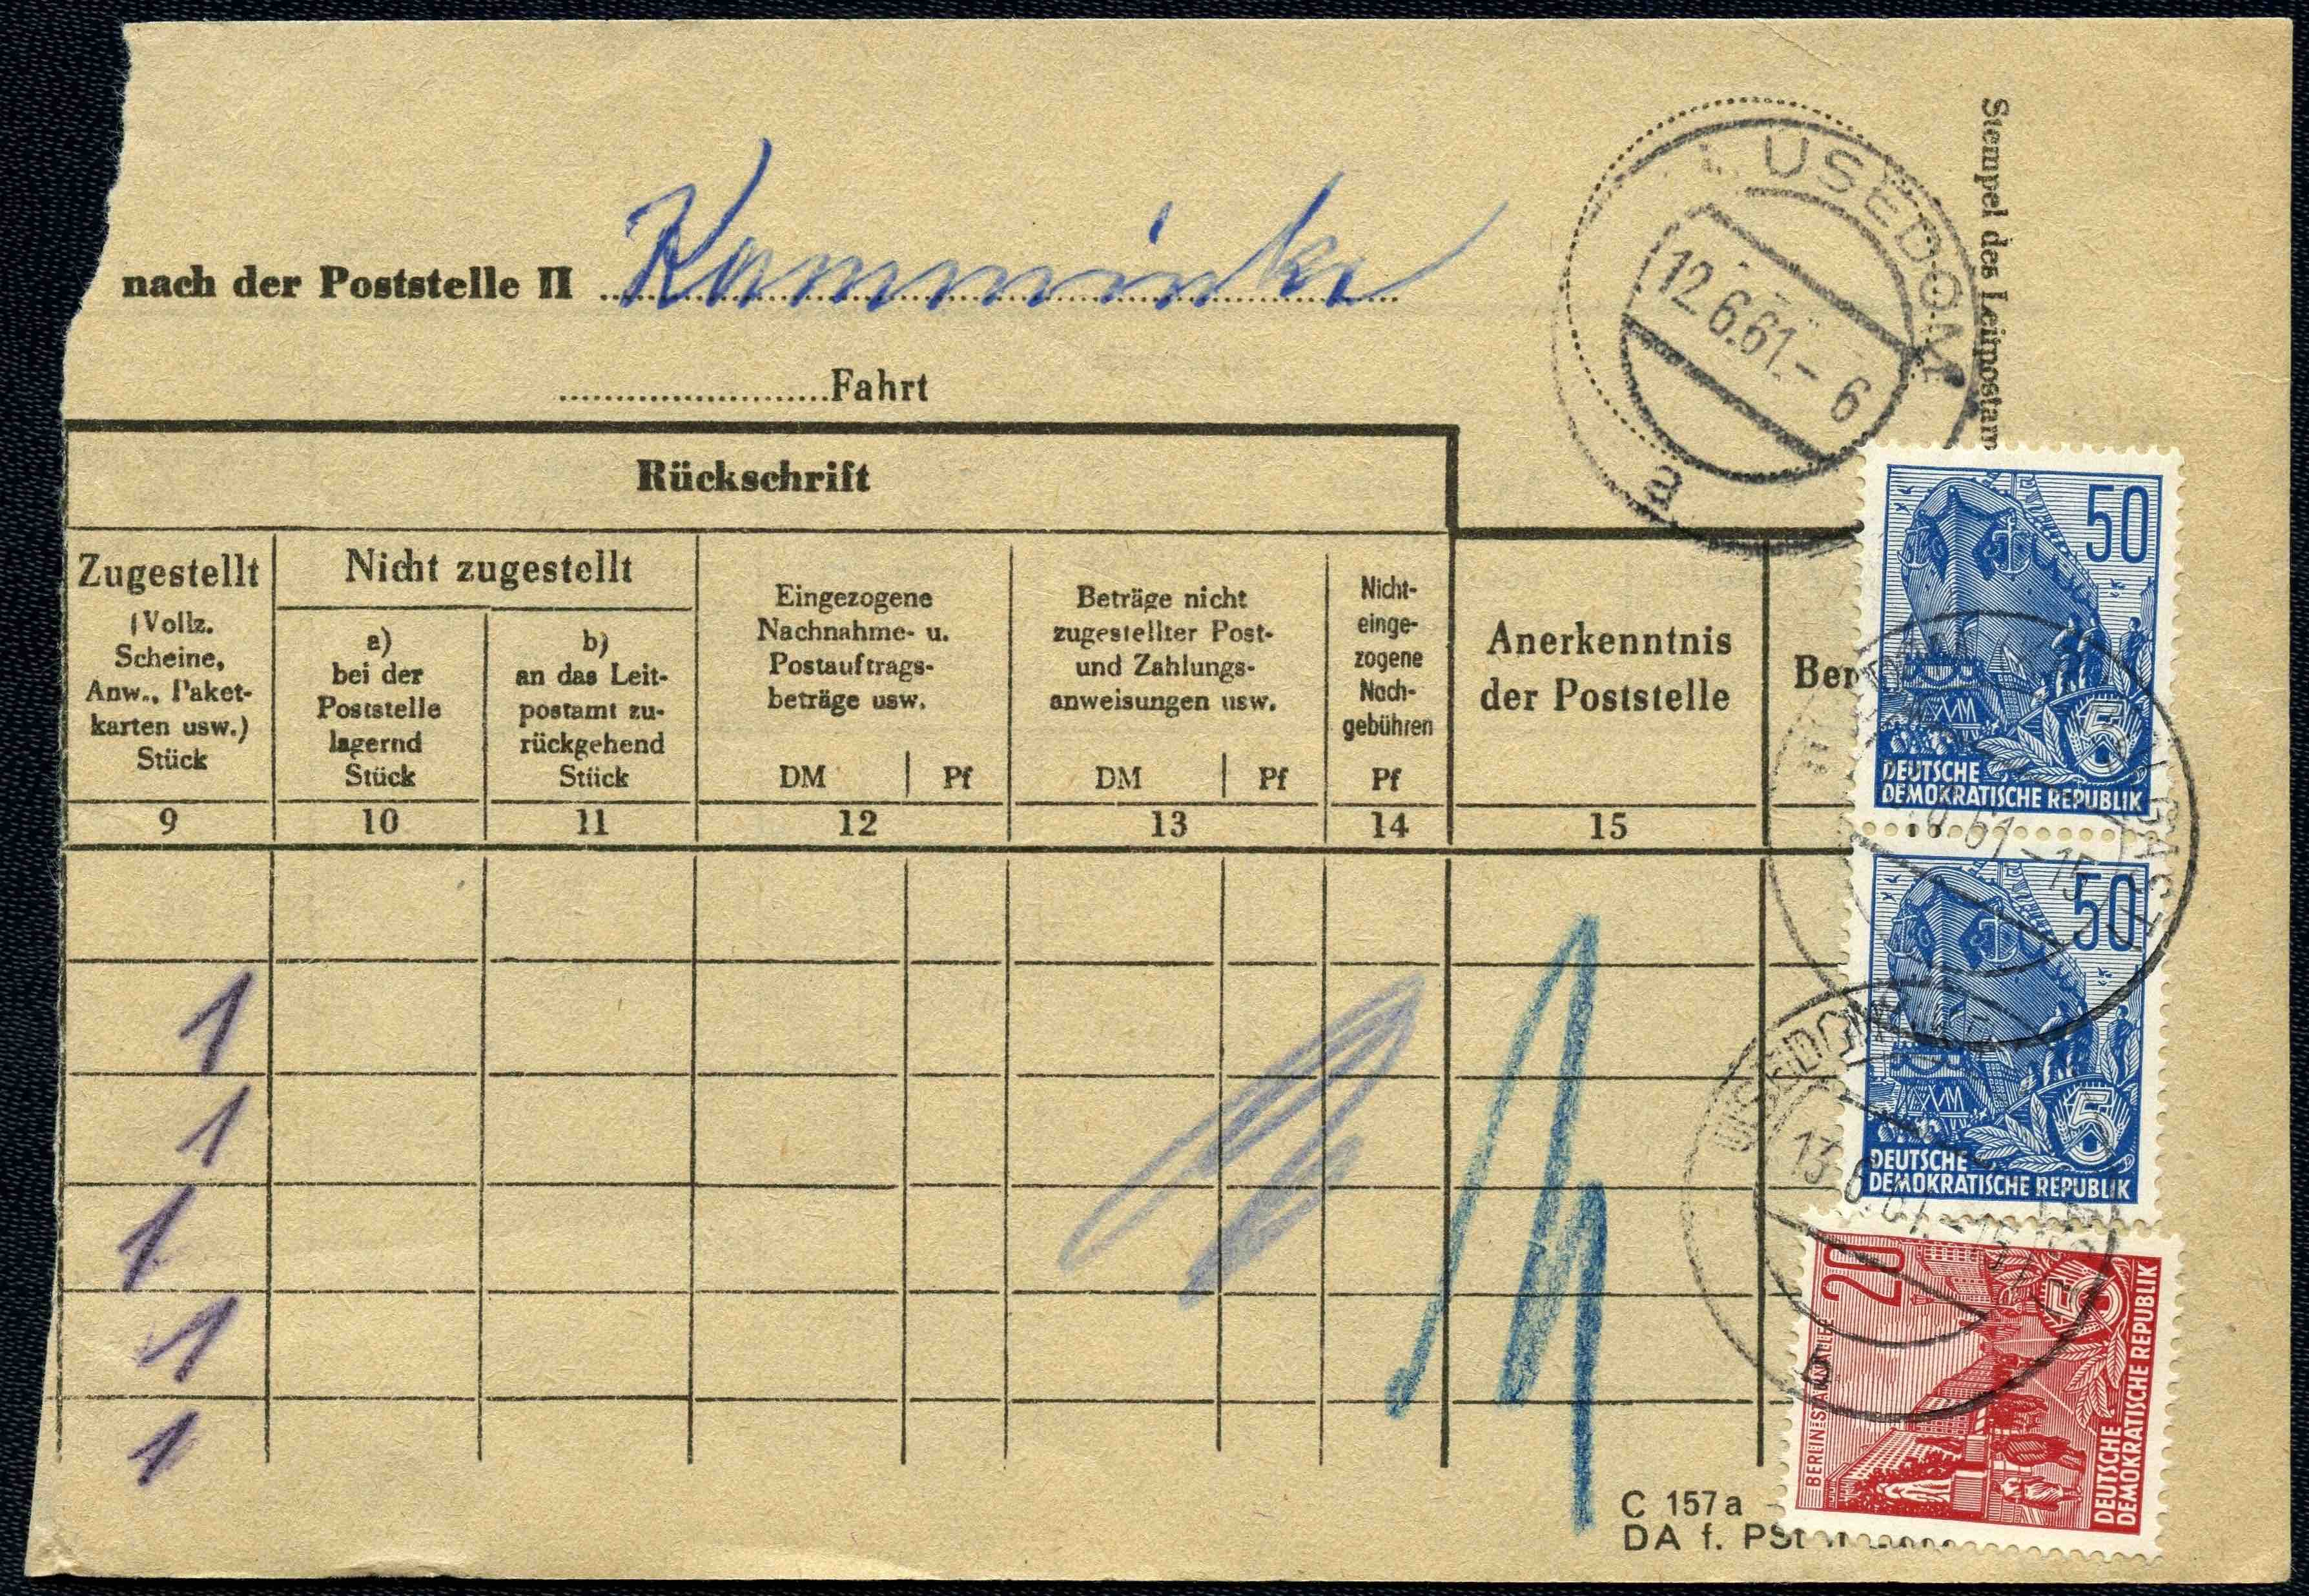 nach der Poststelle II Kamminke
Fahrt
Stempel des Leitpostam
USEDOM
12.6.61.-6
a
Rückschrift
Zugestellt
(Vollz.
Scheine,
Anw., Paket-
karten usw.)
Stück
Nicht zugestellt
a)
bei der
Poststelle
lagernd
Stück
b)
an das Leit-
postamt zu-
rückgehend
Stück
Eingezogene
Nachnahme- u.
Postauftrags-
beträge usw.
DM | Pf
Beträge nicht
zugestellter Post-
und Zahlungs-
anweisungen usw.
DM | Pf
Nicht-
einge-
zogene
Nach-
gebühren
Pf
Anerkenntnis
der Poststelle
Ber
9 10 11 12 13 14 15
1
1
1
1
1
50
5
DEUTSCHE
DEMOKRATISCHE REPUBLIK
61-15
50
5
DEUTSCHE
DEMOKRATISCHE REPUBLIK
USEDOM
13.6.61-15
b
20
5
BERLIN STALINALLEE
DEUTSCHE
DEMOKRATISCHE REPUBLIK
C 157a
DA f. PSt